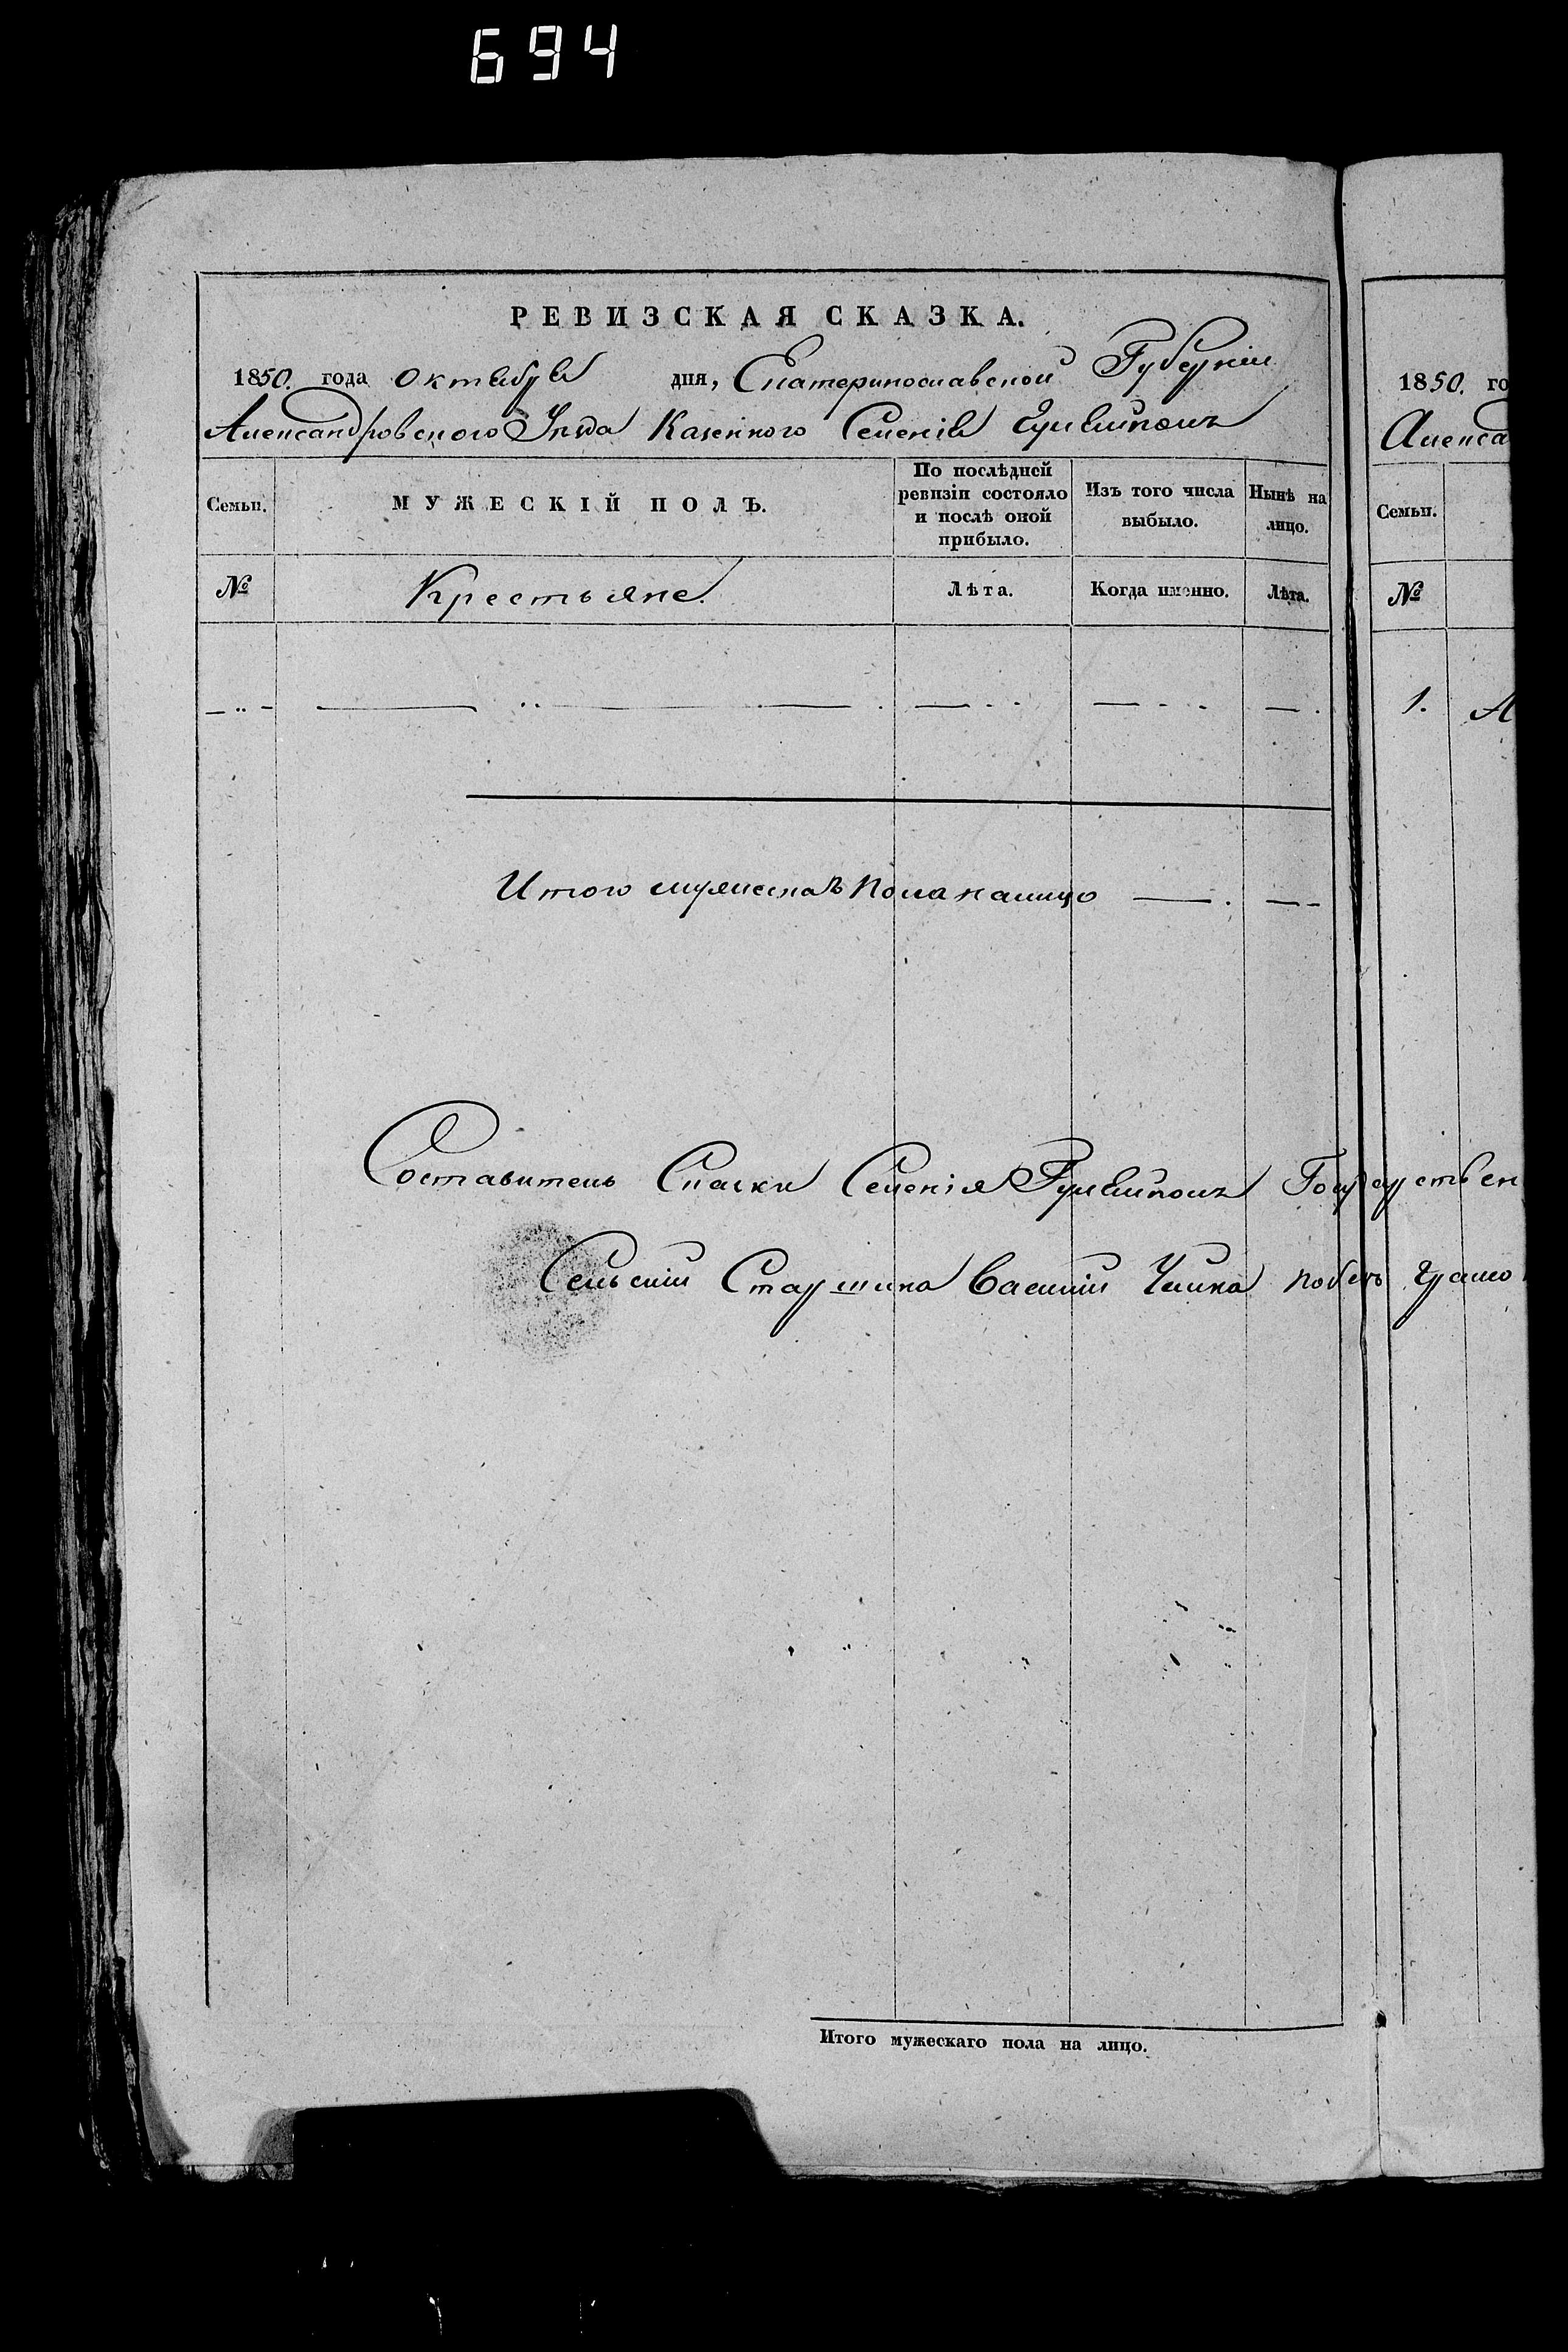 694
РЕВИЗСКАЯ СКАЗКА.
1850. года октября дня, Екатеринославской Губерніи
Александровского Уѣзда Казенного Селенія Гуляйполя
Семьи.
МУЖЕСКІЙ ПОЛЪ.
По послѣдней ревизіи состояло и послѣ оной прибыло.
Изъ того числа выбыло.
Нынѣ на лицо.
№
Крестьяне.
Лѣта.
Когда именно.
Лѣта.
Итого мужеска Пола налицо
Составитель Сказки Селенія Гуляйполя Государствен
Сельскій Старшина Василій
Итого мужескаго пола на лицо.
1850. го
Алекса
Семьи.
№
1. А